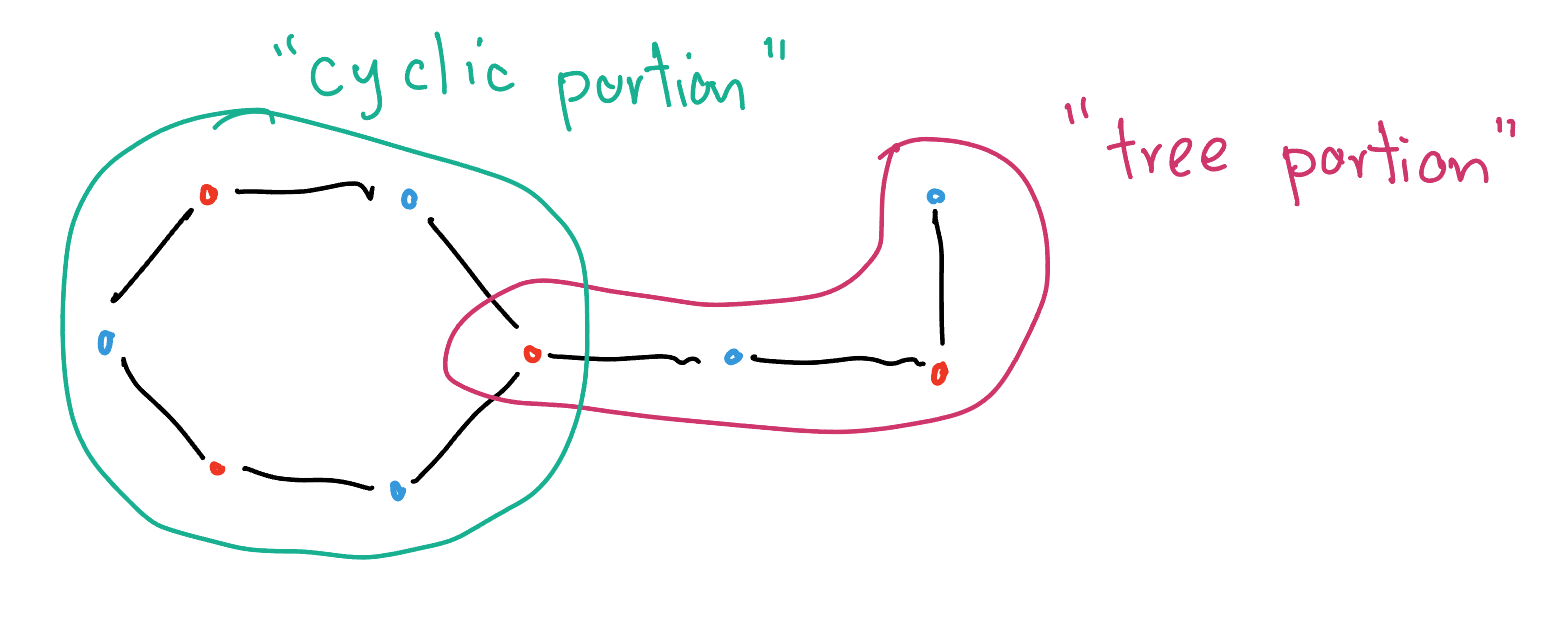 "cyclic portion"
"tree portion"